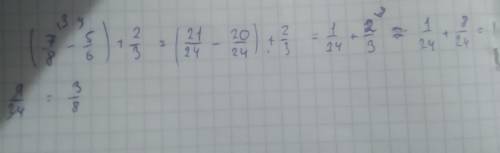 (7/8 - 5/6) + 2/3 = (21/24 - 20/24) + 2/3 = 1/24 + 2/3 = 1/24 + 8/24 =
9/24 = 3/8